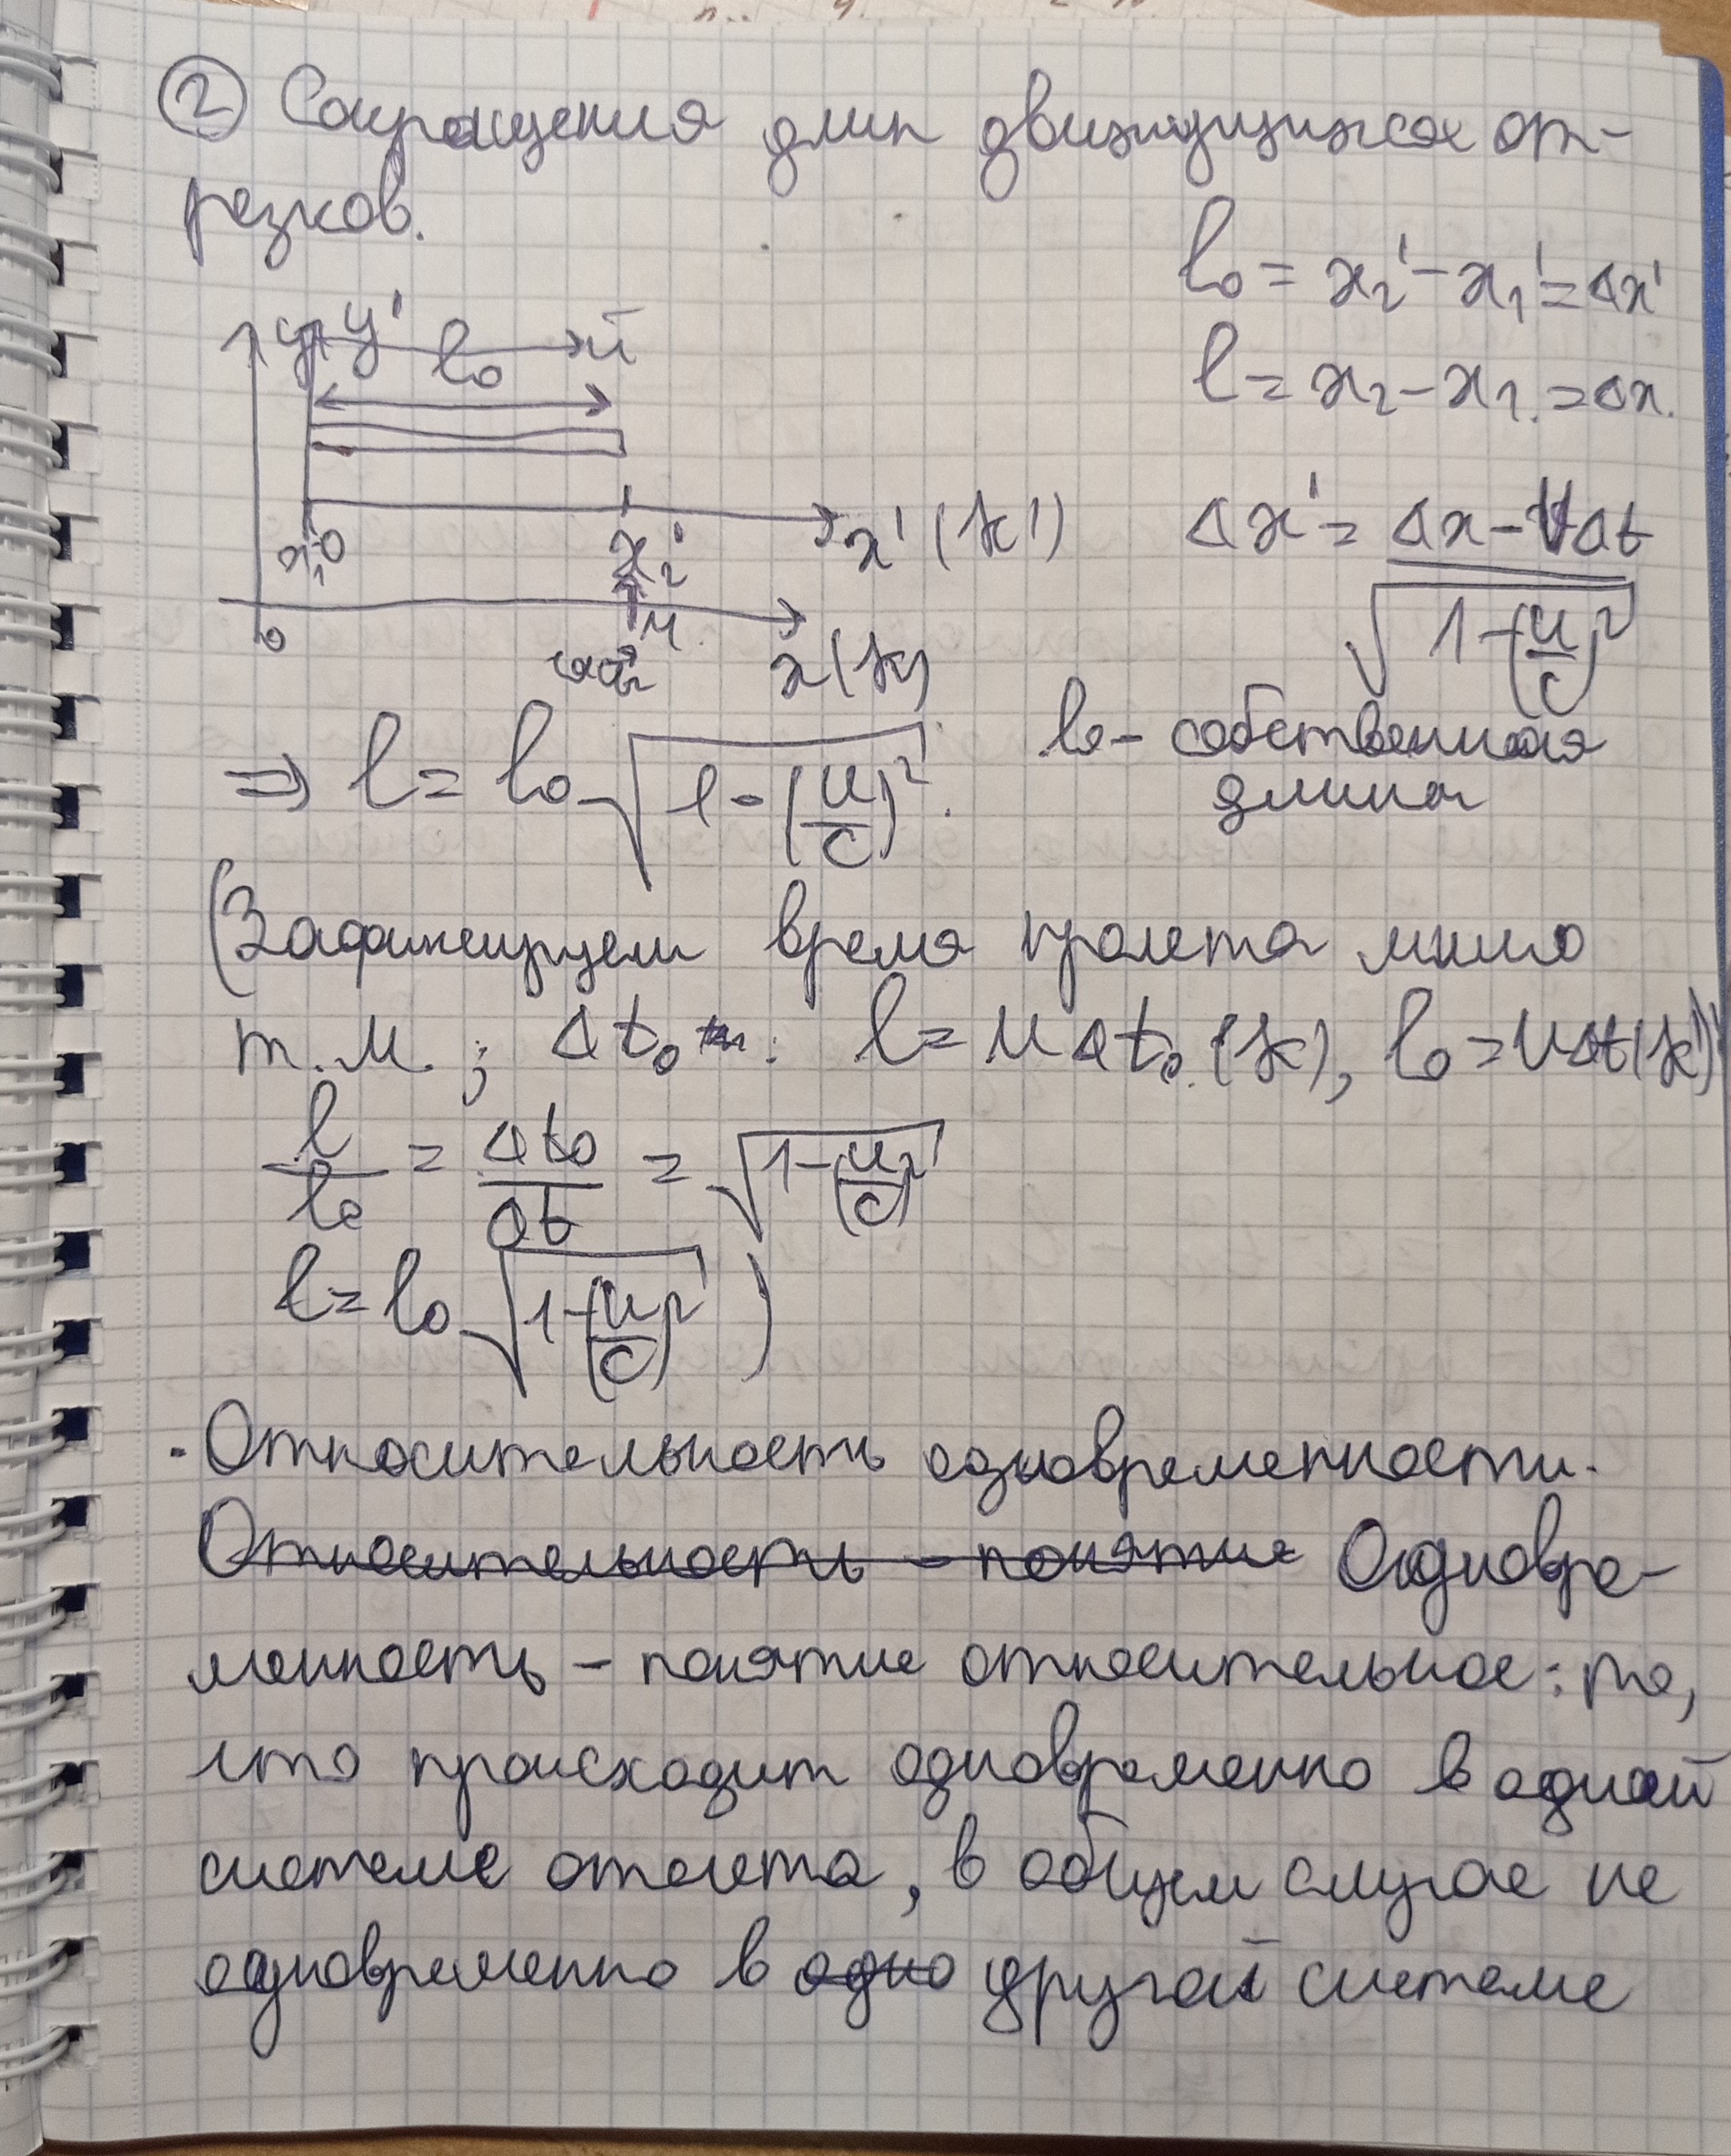 ② Сокращения длин движущихся от-
резков.
l₀ = x₂' - x₁' = Δx'
l = x₂ - x₁ = Δx.
y y' l₀ u
x₁' 0 x₂' x' (k')
Δx' = (Δx - uΔt) / √(1 - (u/c)²)
0 М x (k)
⇒ l = l₀ √(1 - (u/c)²).
l₀ - собственная
длина
(Зафиксируем время пролета мимо
т. М. ; Δt₀ : l = uΔt₀ (k), l₀ = uΔt (k')
l/l₀ = Δt₀/Δt = √(1 - (u/c)²)
l = l₀ √(1 - (u/c)²) )
· Относительность одновременности.
Относительность - понятие Одновре-
менность - понятие относительное: то,
что происходит одновременно в одной
системе отсчета, в общем случае не
одновременно в одно другой системе